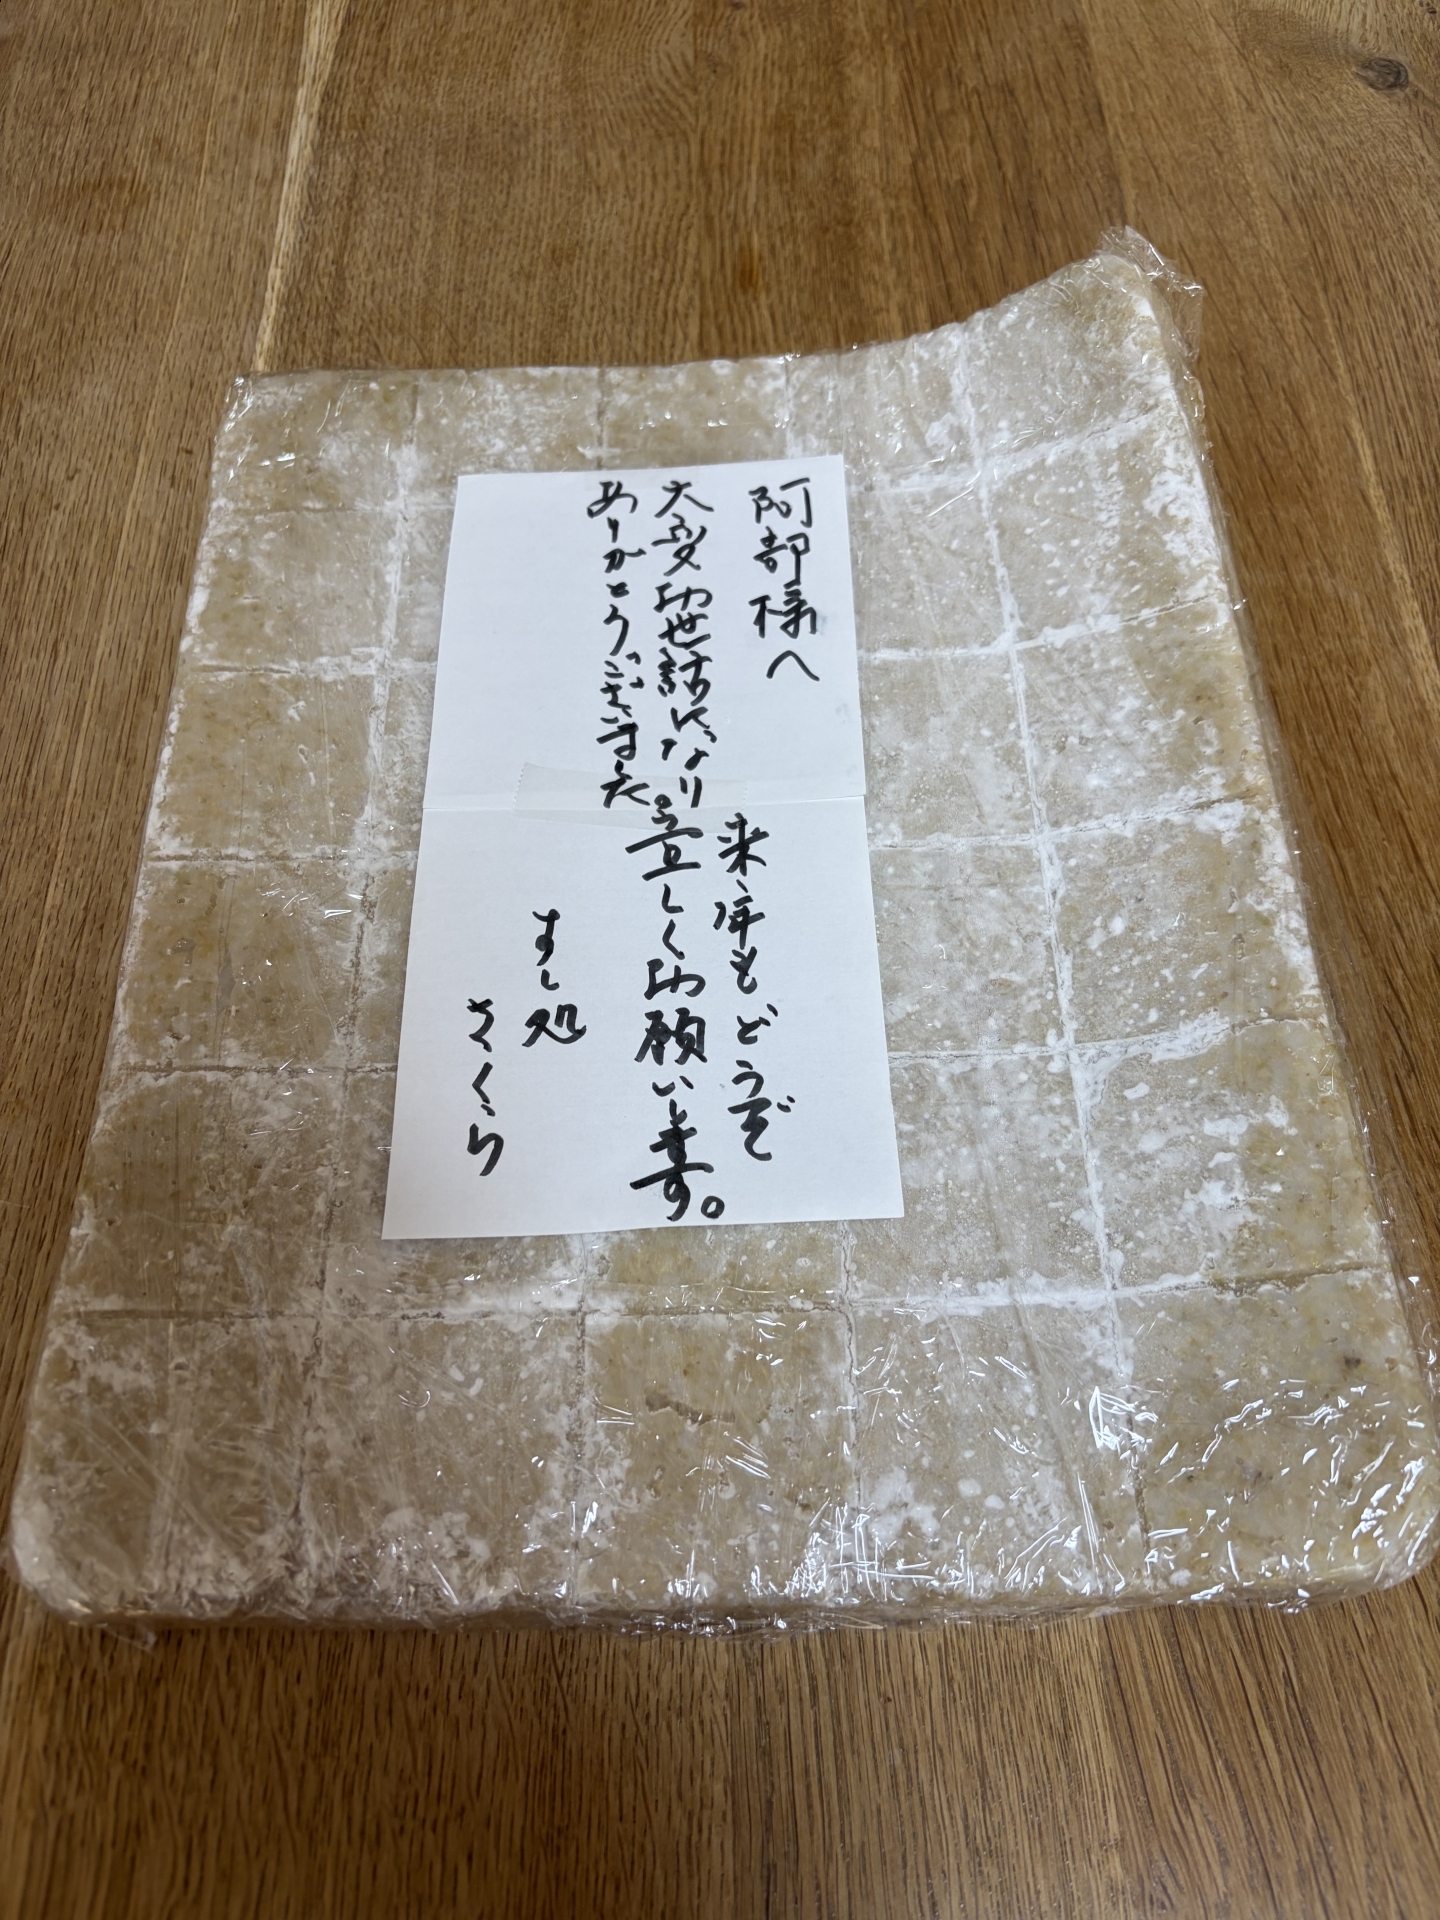 阿部様へ
大変お世話になり
ありがとうございました。
来年もどうぞ
宜しくお願いします。
すし処
さくら